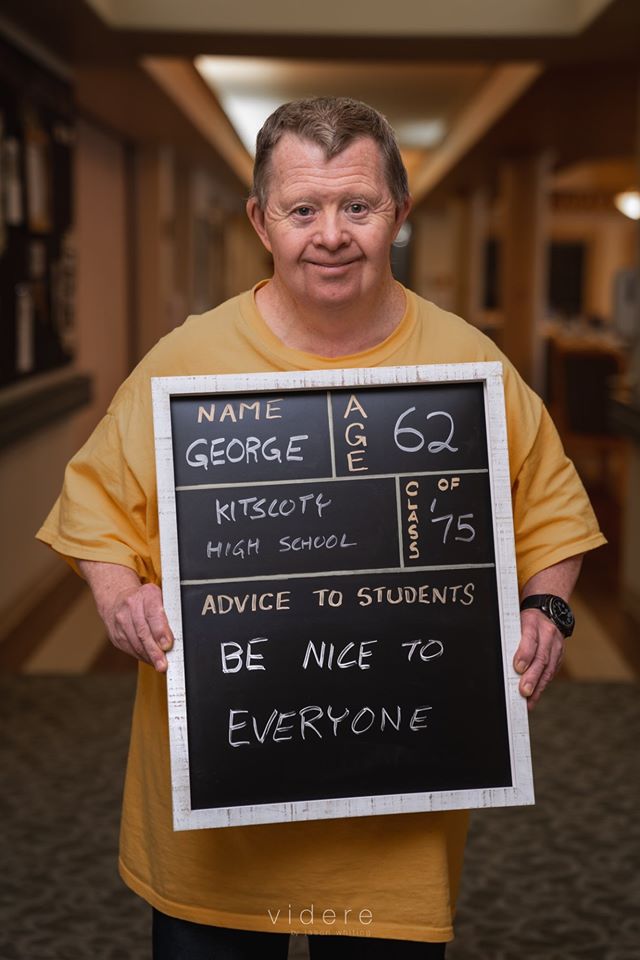 NAME
GEORGE
AGE
62
KITSCOTY
HIGH SCHOOL
CLASS OF
'75
ADVICE TO STUDENTS
BE NICE TO
EVERYONE
videre
by jason whiting